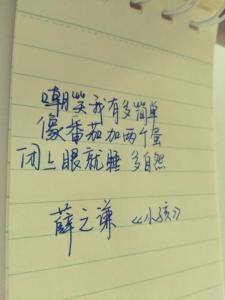 嘲笑我有多简单
像番茄加两个蛋
闭上眼就睡 多自然
薛之谦 《小孩》